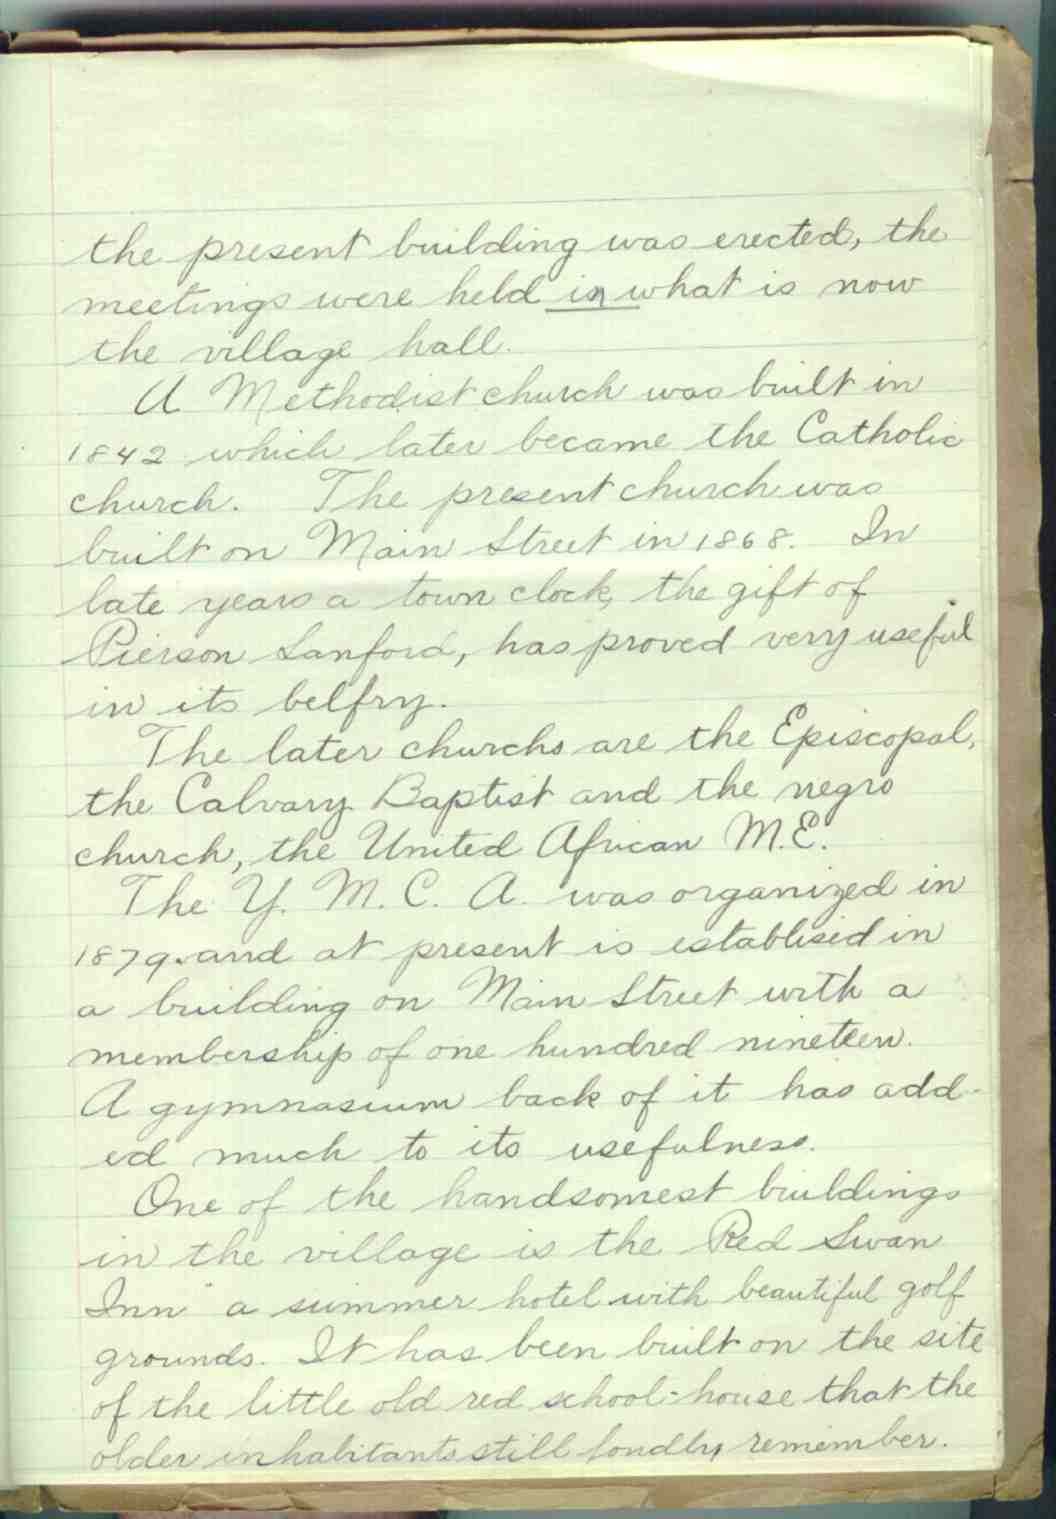 the present building was erected, the
meetings were held in what is now
the village hall.
A Methodist church was built in
1842 which later became the Catholic
church. The present church was
built on Main Street in 1868. In
late years a town clock, the gift of
Pierson Sanford, has proved very useful
in its belfry.
The later churchs are the Episcopal,
the Calvary Baptist and the negro
church, the United African M.E.
The Y. M. C. A. was organized in
1879. and at present is establised in
a building on Main Street with a
membership of one hundred nineteen.
A gymnasium back of it has add-
ed much to its usefulness.
One of the handsomest buildings
in the village is the Red Swan
Inn a summer hotel with beautiful golf
grounds. It has been built on the site
of the little old red school-house that the
older inhabitants still fondly remember.